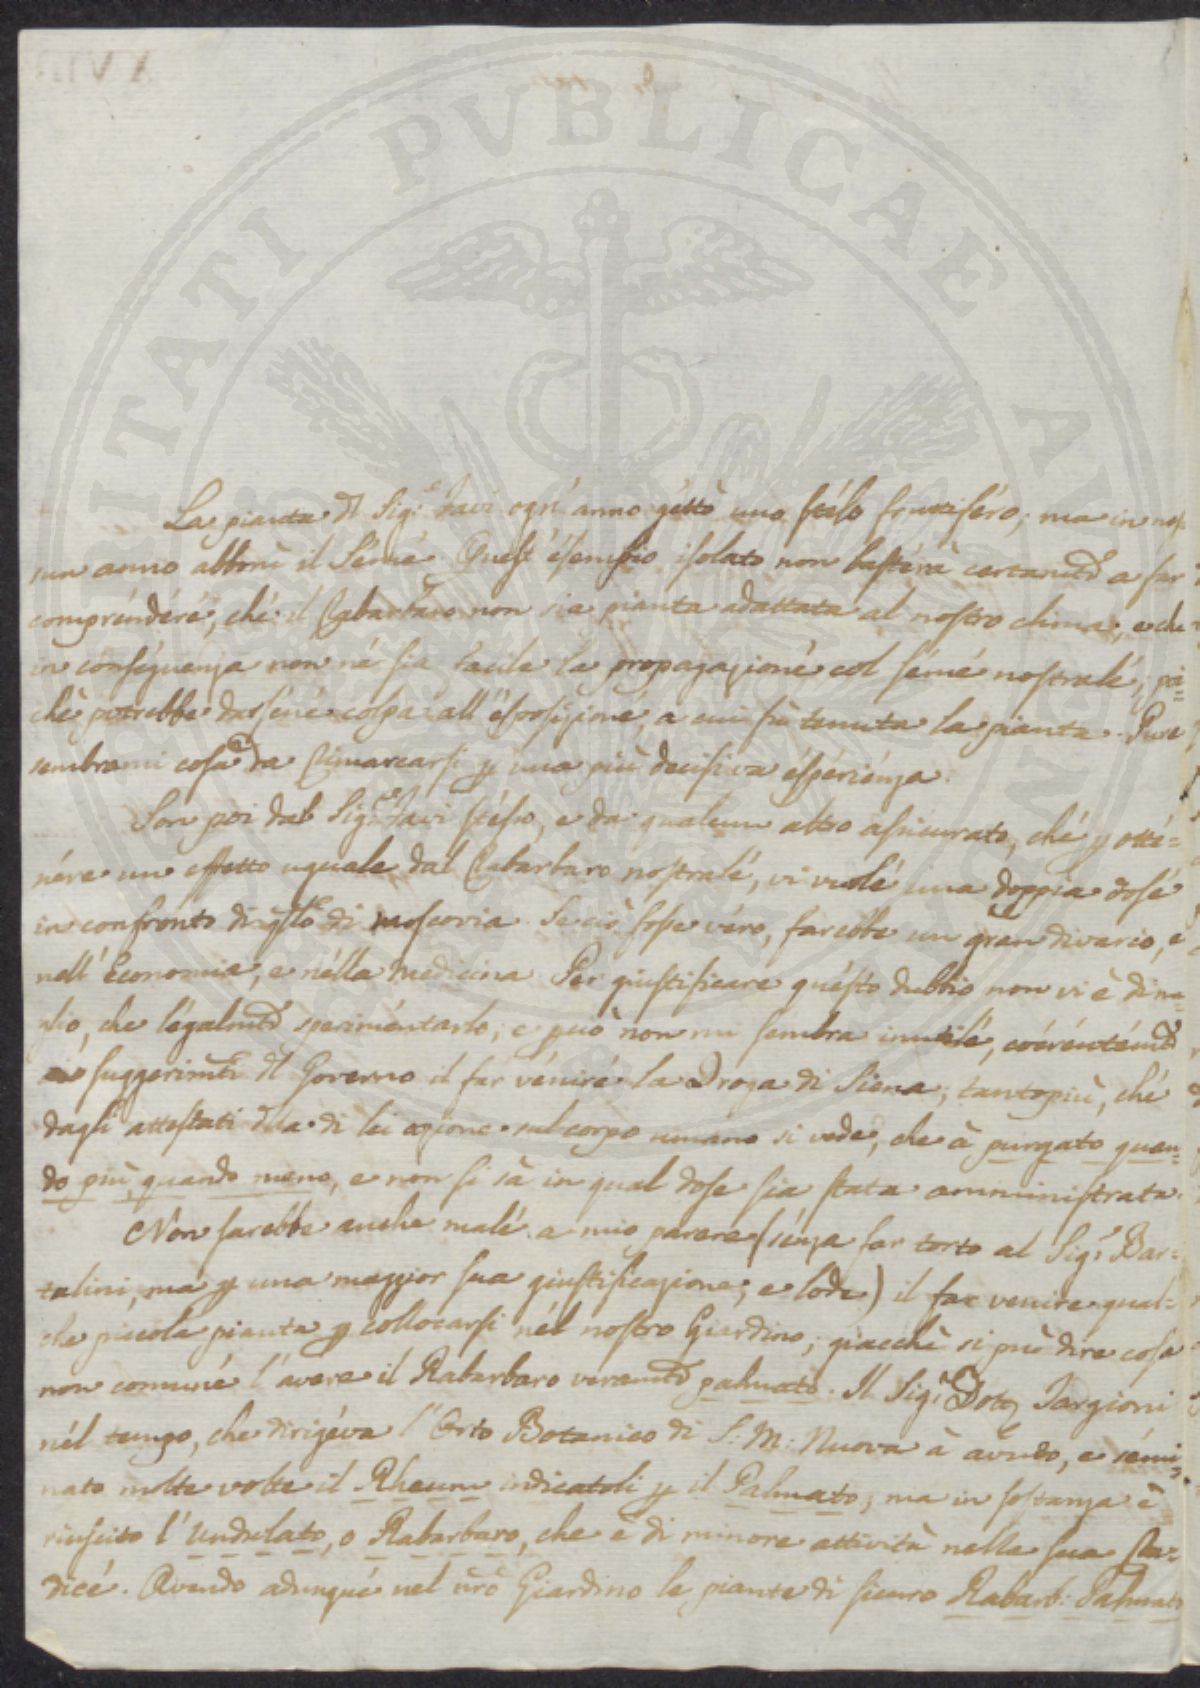 PROSPERITATI PVBLICAE AVGENDAE
La pianta dl Sig.e Javi ogn' anno gettò uno stelo fruttifero; ma in nes
sun anno abbonì il Seme. Quest' esempio isolato non basterà certam.te a far
comprendere, che il Rabarbaro non sia pianta adattata al nostro clima, e che
in conseguenza non ne sia facile la propagazione col seme nostrale; poi=
chè potrebbe darsene colpa all' esposizione, a cui fù tenuta la pianta. Pure
sembrami cosa da rimarcarsi p una più decisiva esperienza.
Son poi dal Sig.re Javi stesso, e da qualcun altro assicurato, che p otte=
nere un effetto uguale dal Rabarbaro nostrale, vi vuole una doppia dose
in confronto di qsto di Moscovia. Se ciò fosse vero, farebbe un gran divario, e
nell' Economia, e nella Medicina. Per giustificare questo dubbio non vi è di me=
glio, che legalm.te sperimentarlo, e però non mi sembra inutile, coerentem.te
ai suggerim.ti dl Governo il far venire la Droga di Siena; tantopiù, che
dagli attestati dlla di lei azione sul corpo umano si vede, che à purgato quan=
do più, quando meno, e non si sà in qual dose sia stata amministrata.
Non sarebbe anche male a mio parere (senza far torto al Sig.r Bar=
talini, ma p una maggior sua giustificazione, e lode) il far venire qual=
che piccola pianta p collocarsi nel nostro Giardino; giacchè si può dire cosa
non comune l'avere il Rabarbaro veram.te palmato. Il Sig.r Dott Targioni
nel tempo, che dirigeva l'Orto Botanico di S: M: Nuova à avuto, e semi=
nato molte volte il Rheum indicatoli p il Palmato; ma in sostanza è
riuscito l'Undulato, o Rabarbaro, che è di minore attività nella sua Ra=
dice. Avendo adunque nel nrõ Giardino le piante di sicuro Rabarb: Palmato